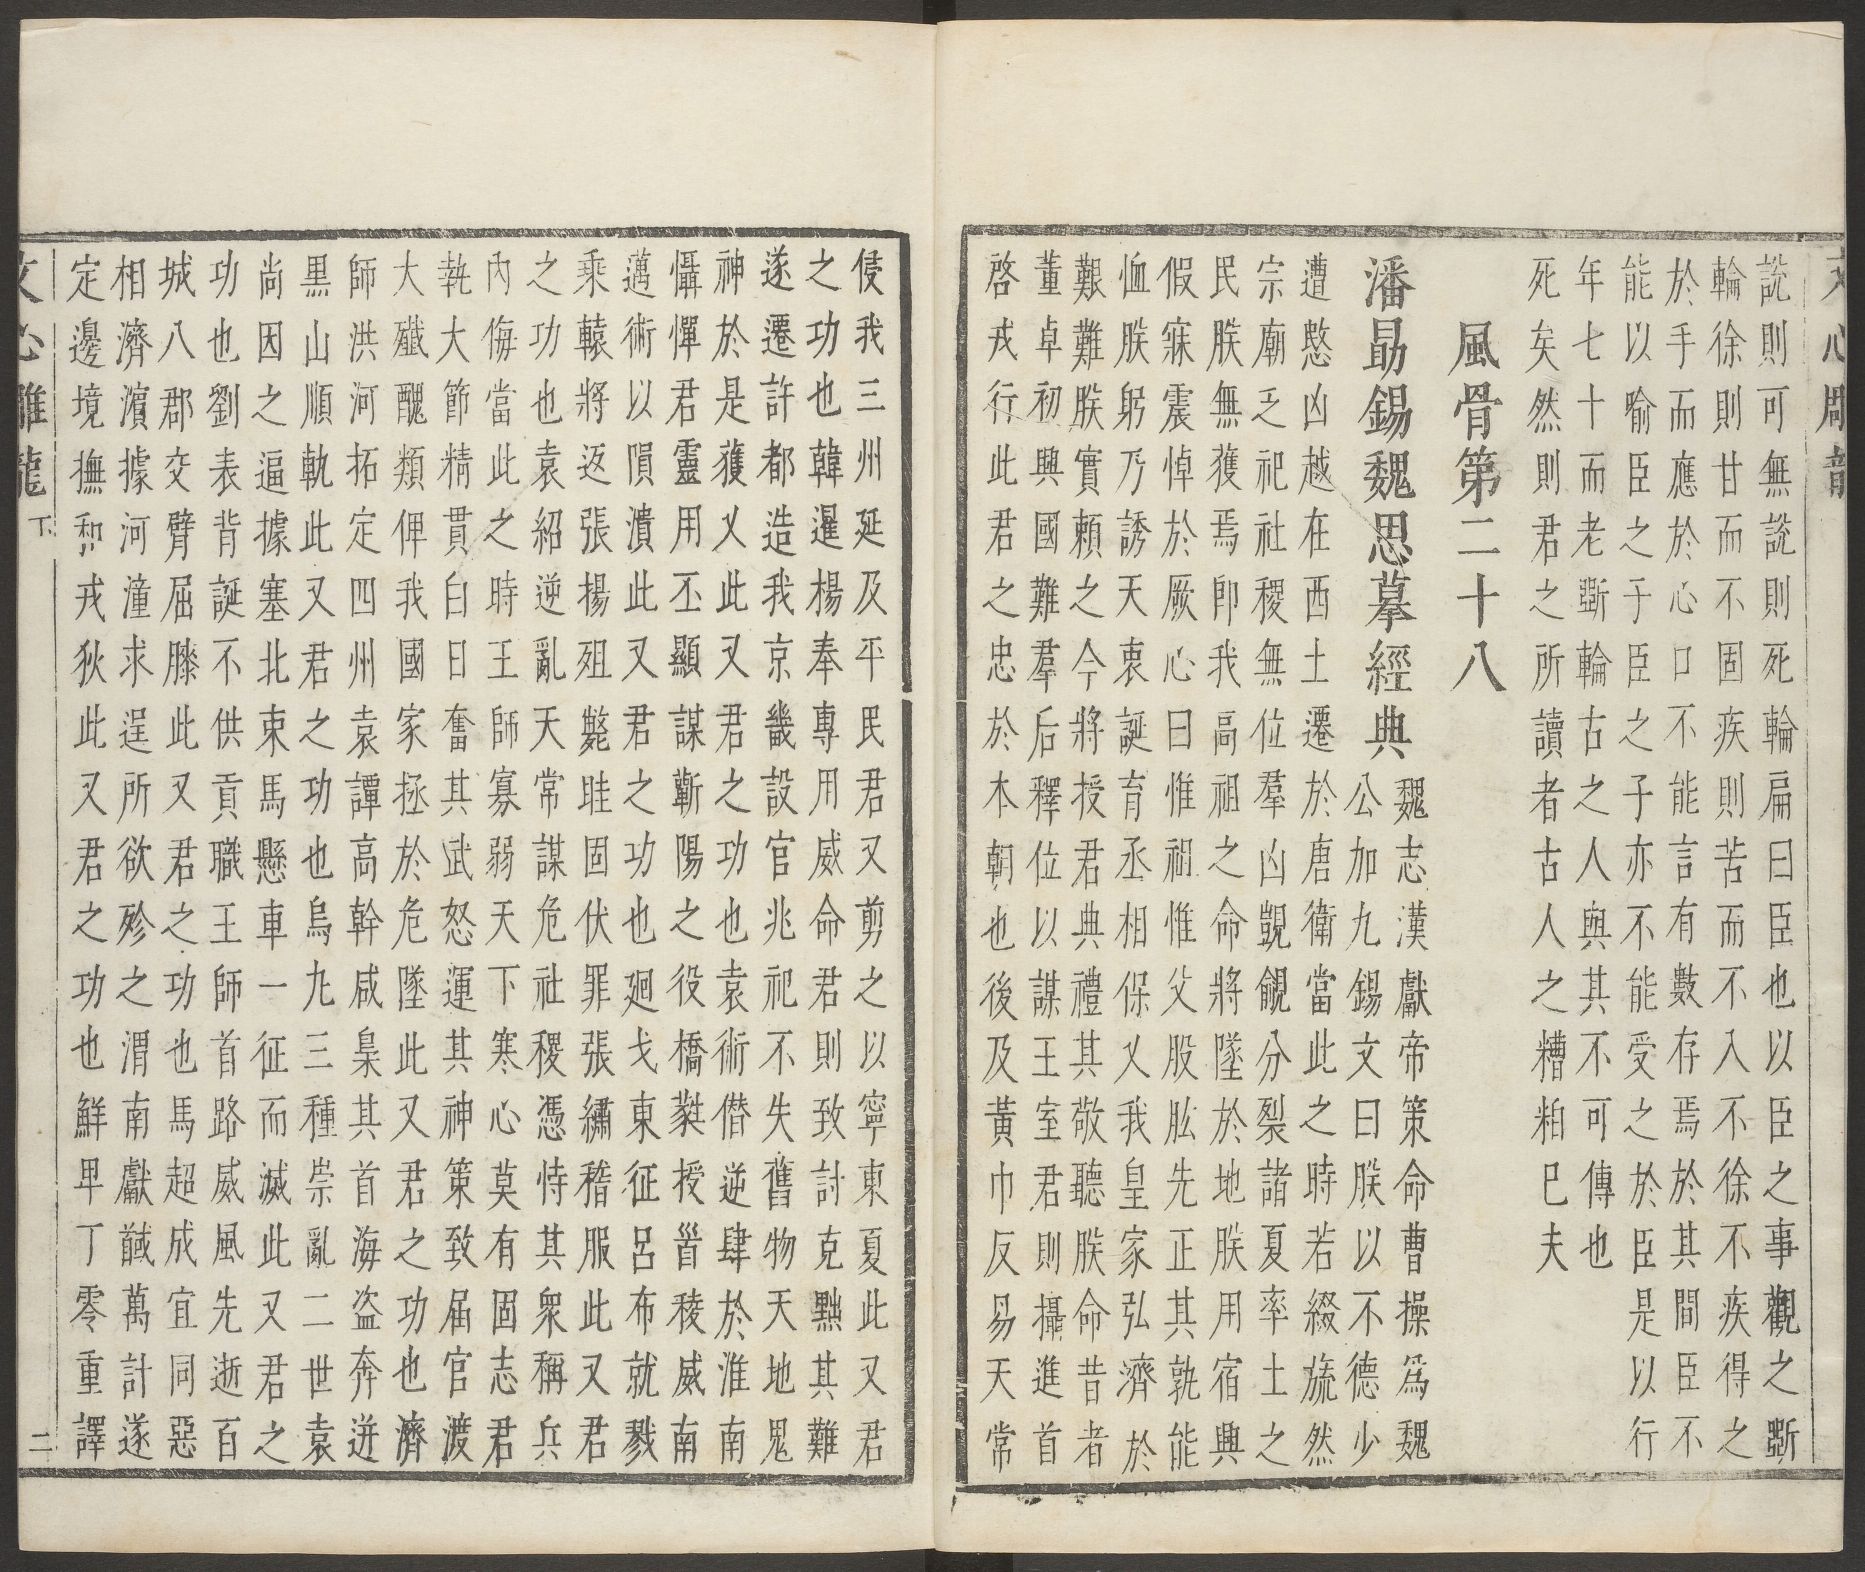 文心雕龍
說則可無說則死輪扁曰臣也以臣之事觀之斲
輪徐則甘而不固疾則苦而不入不徐不疾得之
於手而應於心口不能言有數存焉於其間臣不
能以喻臣之子臣之子亦不能受之於臣是以行
年七十而老斲輪古之人與其不可傳也
死矣然則君之所讀者古人之糟粕已夫
風骨第二十八
潘勗錫魏思摹經典
魏志漢獻帝策命曹操爲魏
公加九錫文曰朕以不德少
遭愍凶越在西土遷於唐衛當此之時若綴旒然
宗廟乏祀社稷無位羣凶覬覦分裂諸夏率土之
民朕無獲焉即我高祖之命將墜於地朕用宿興
假寐震悼於厥心曰惟祖惟父股肱先正其孰能
恤朕躬乃誘天衷誕育丞相保乂我皇家弘濟於
艱難朕實賴之今將授君典禮其敬聽朕命昔者
董卓初興國難羣后釋位以謀王室君則攝進首
啓戎行此君之忠於本朝也後及黃巾反易天常
侵我三州延及平民君又剪之以寧東夏此又君
之功也韓暹楊奉專用威命君則致討克黜其難
遂遷許都造我京畿設官兆祀不失舊物天地鬼
神於是獲乂此又君之功也袁術僭逆肆於淮南
懾憚君靈用丕顯謀蘄陽之役橋蕤授首稜威南
邁術以隕潰此又君之功也廻戈東征呂布就戮
乘轅將返張揚殂斃眭固伏罪張繡稽服此又君
之功也袁紹逆亂天常謀危社稷憑恃其衆稱兵
內侮當此之時王師寡弱天下寒心莫有固志君
執大節精貫白日奮其武怒運其神策致屆官渡
大殲醜類俾我國家拯於危墜此又君之功也濟
師洪河拓定四州袁譚高幹咸梟其首海盜奔迸
黑山順軌此又君之功也烏丸三種崇亂二世袁
尚因之逼據塞北束馬懸車一征而滅此又君之
功也劉表背誕不供貢職王師首路威風先逝百
城八郡交臂屈膝此又君之功也馬超成宜同惡
相濟濱據河潼求逞所欲殄之渭南獻馘萬計遂
定邊境撫和戎狄此又君之功也鮮卑丁零重譯
文心雕龍 下 二